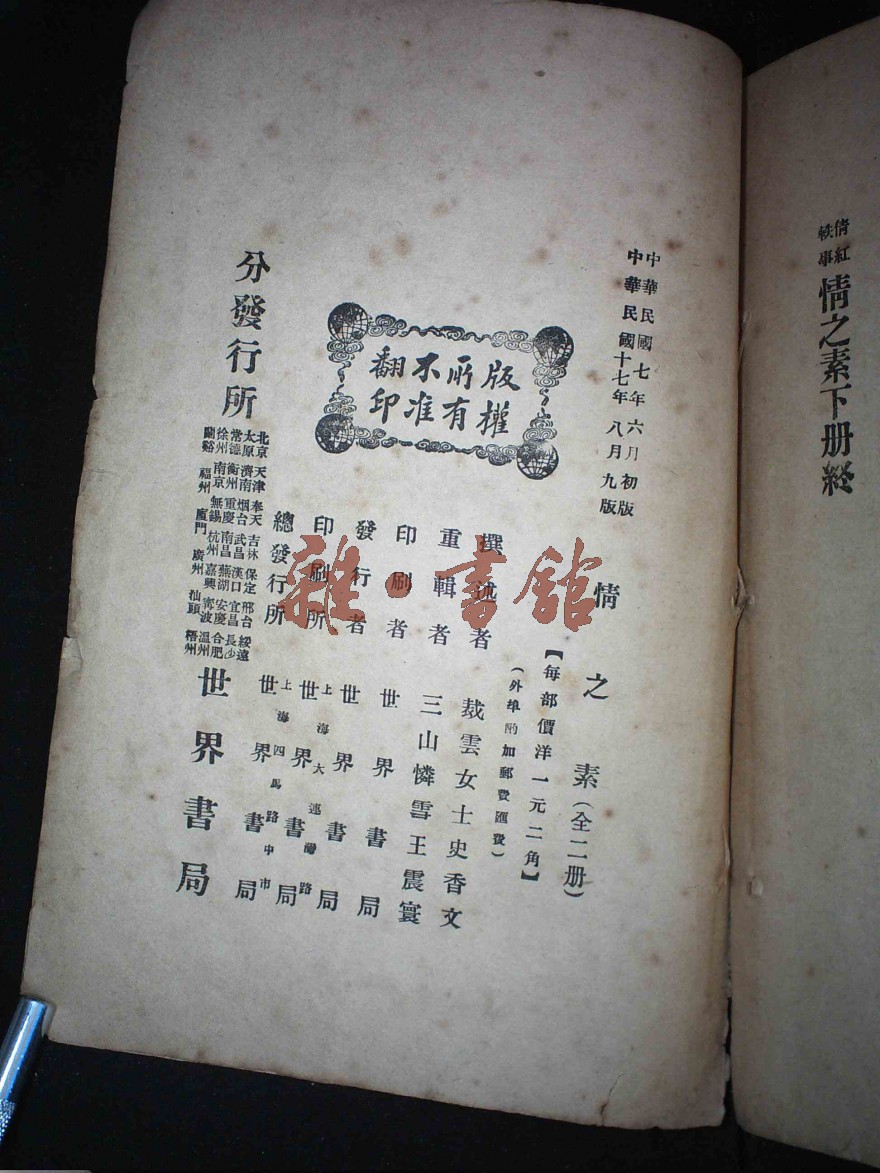 倩紅
軼事
情之素下册終
中華民國七年六月初版
中華民國十七年八月九版
版權
所有
不准
翻印
情之素(全二册)
【每部價洋一元二角】
(外埠酌加郵費匯費)
撰述者 裁雲女士史香文
重輯者 三山憐雪王震寰
印刷者 世界書局
發行者 世界書局
印刷所 上海大連灣路 世界書局
總發行所 上海四馬路中市 世界書局
分發行所
北京 天津 奉天 吉林 保定 邢台 綏遠
太原 濟南 烟台 武昌 漢口 宜昌 長少
常德 衡州 重慶 南昌 蕪湖 安慶 合肥
徐州 南京 無錫 杭州 嘉興 寗波 溫州
蘭谿 福州 廈門 廣州 汕頭 梧州
世界書局
雜·書館